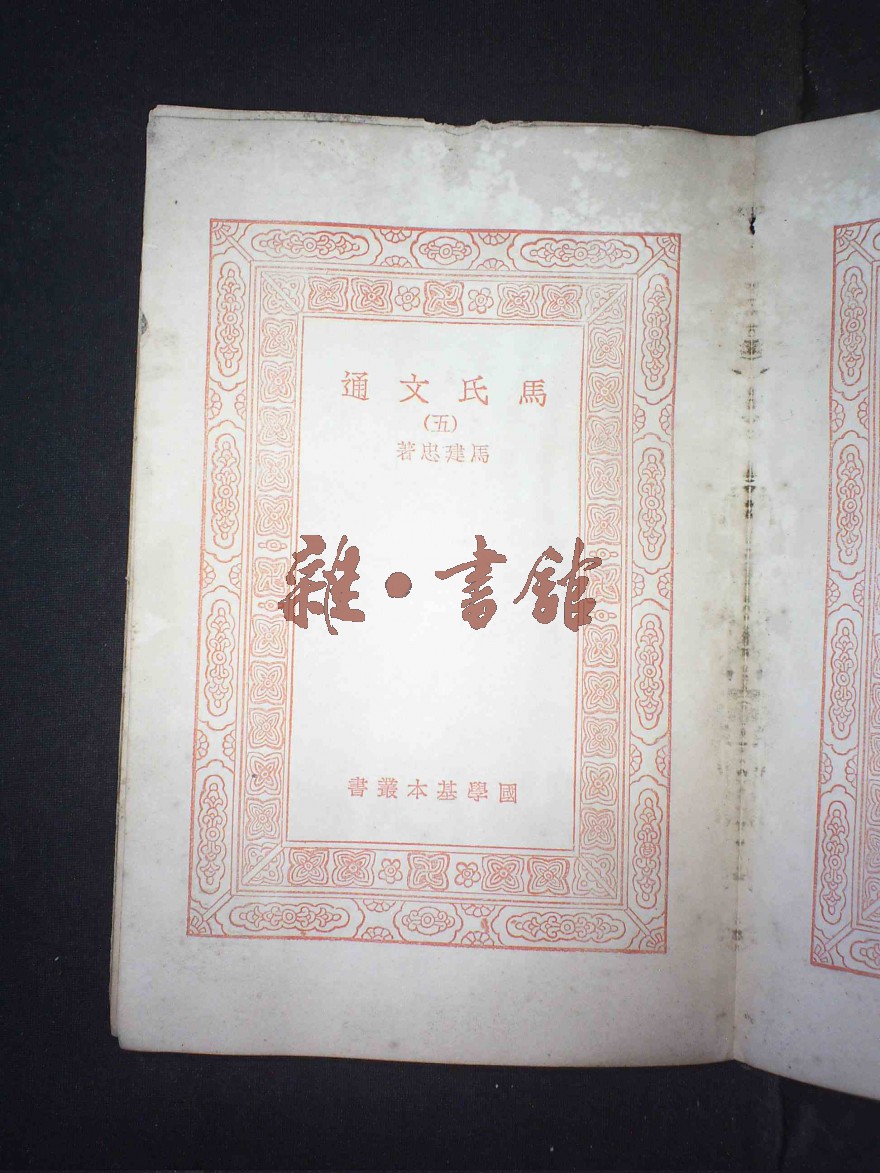 馬氏文通
(五)
馬建忠著
雜·書館
國學基本叢書